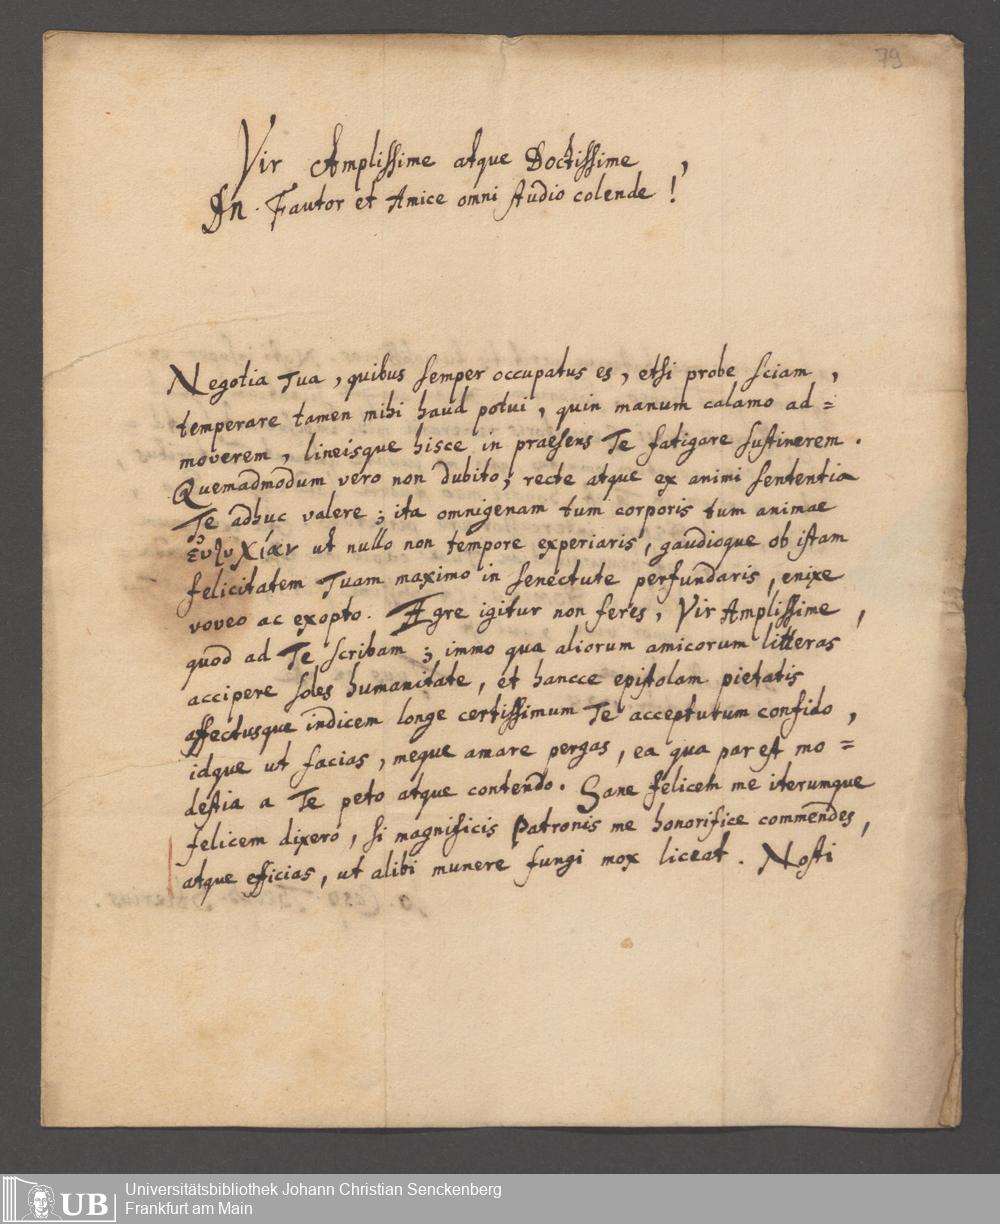 79
Vir Amplissime atque Doctissime,
Dn. Fautor et Amice omni studio colende!
Negotia Tua, quibus semper occupatus es, etsi probe sciam,
temperare tamen mihi haud potui, quin manum calamo ad=
moverem, lineisque hisce in praesens Te fatigare sustinerem.
Quemadmodum vero non dubito, recte atque ex animi sententia
Te adhuc valere; ita omnigenam tum corporis tum animae
ut nullo non tempore experiaris, gaudioque ob istam
felicitatem Tuam maximo in senectute perfundaris, enixe
voveo ac exopto. Ægre igitur non feres, Vir Amplissime,
quod ad Te scribam; immo qua aliorum amicorum litteras
accipere soles humanitate, et hancce epistolam pietatis
affectusque indicem longe certissimum Te accepturum confido,
idque ut facias, meque amare pergas, ea qua par est mo=
destia a Te peto atque contendo. Sane felicem me iterumque
felicem dixero, si magnificis Patronis me honorifice commendes,
atque efficias, ut alibi munere fungi mox liceat. Nosti
UB
Universitätsbibliothek Johann Christian Senckenberg
Frankfurt am Main